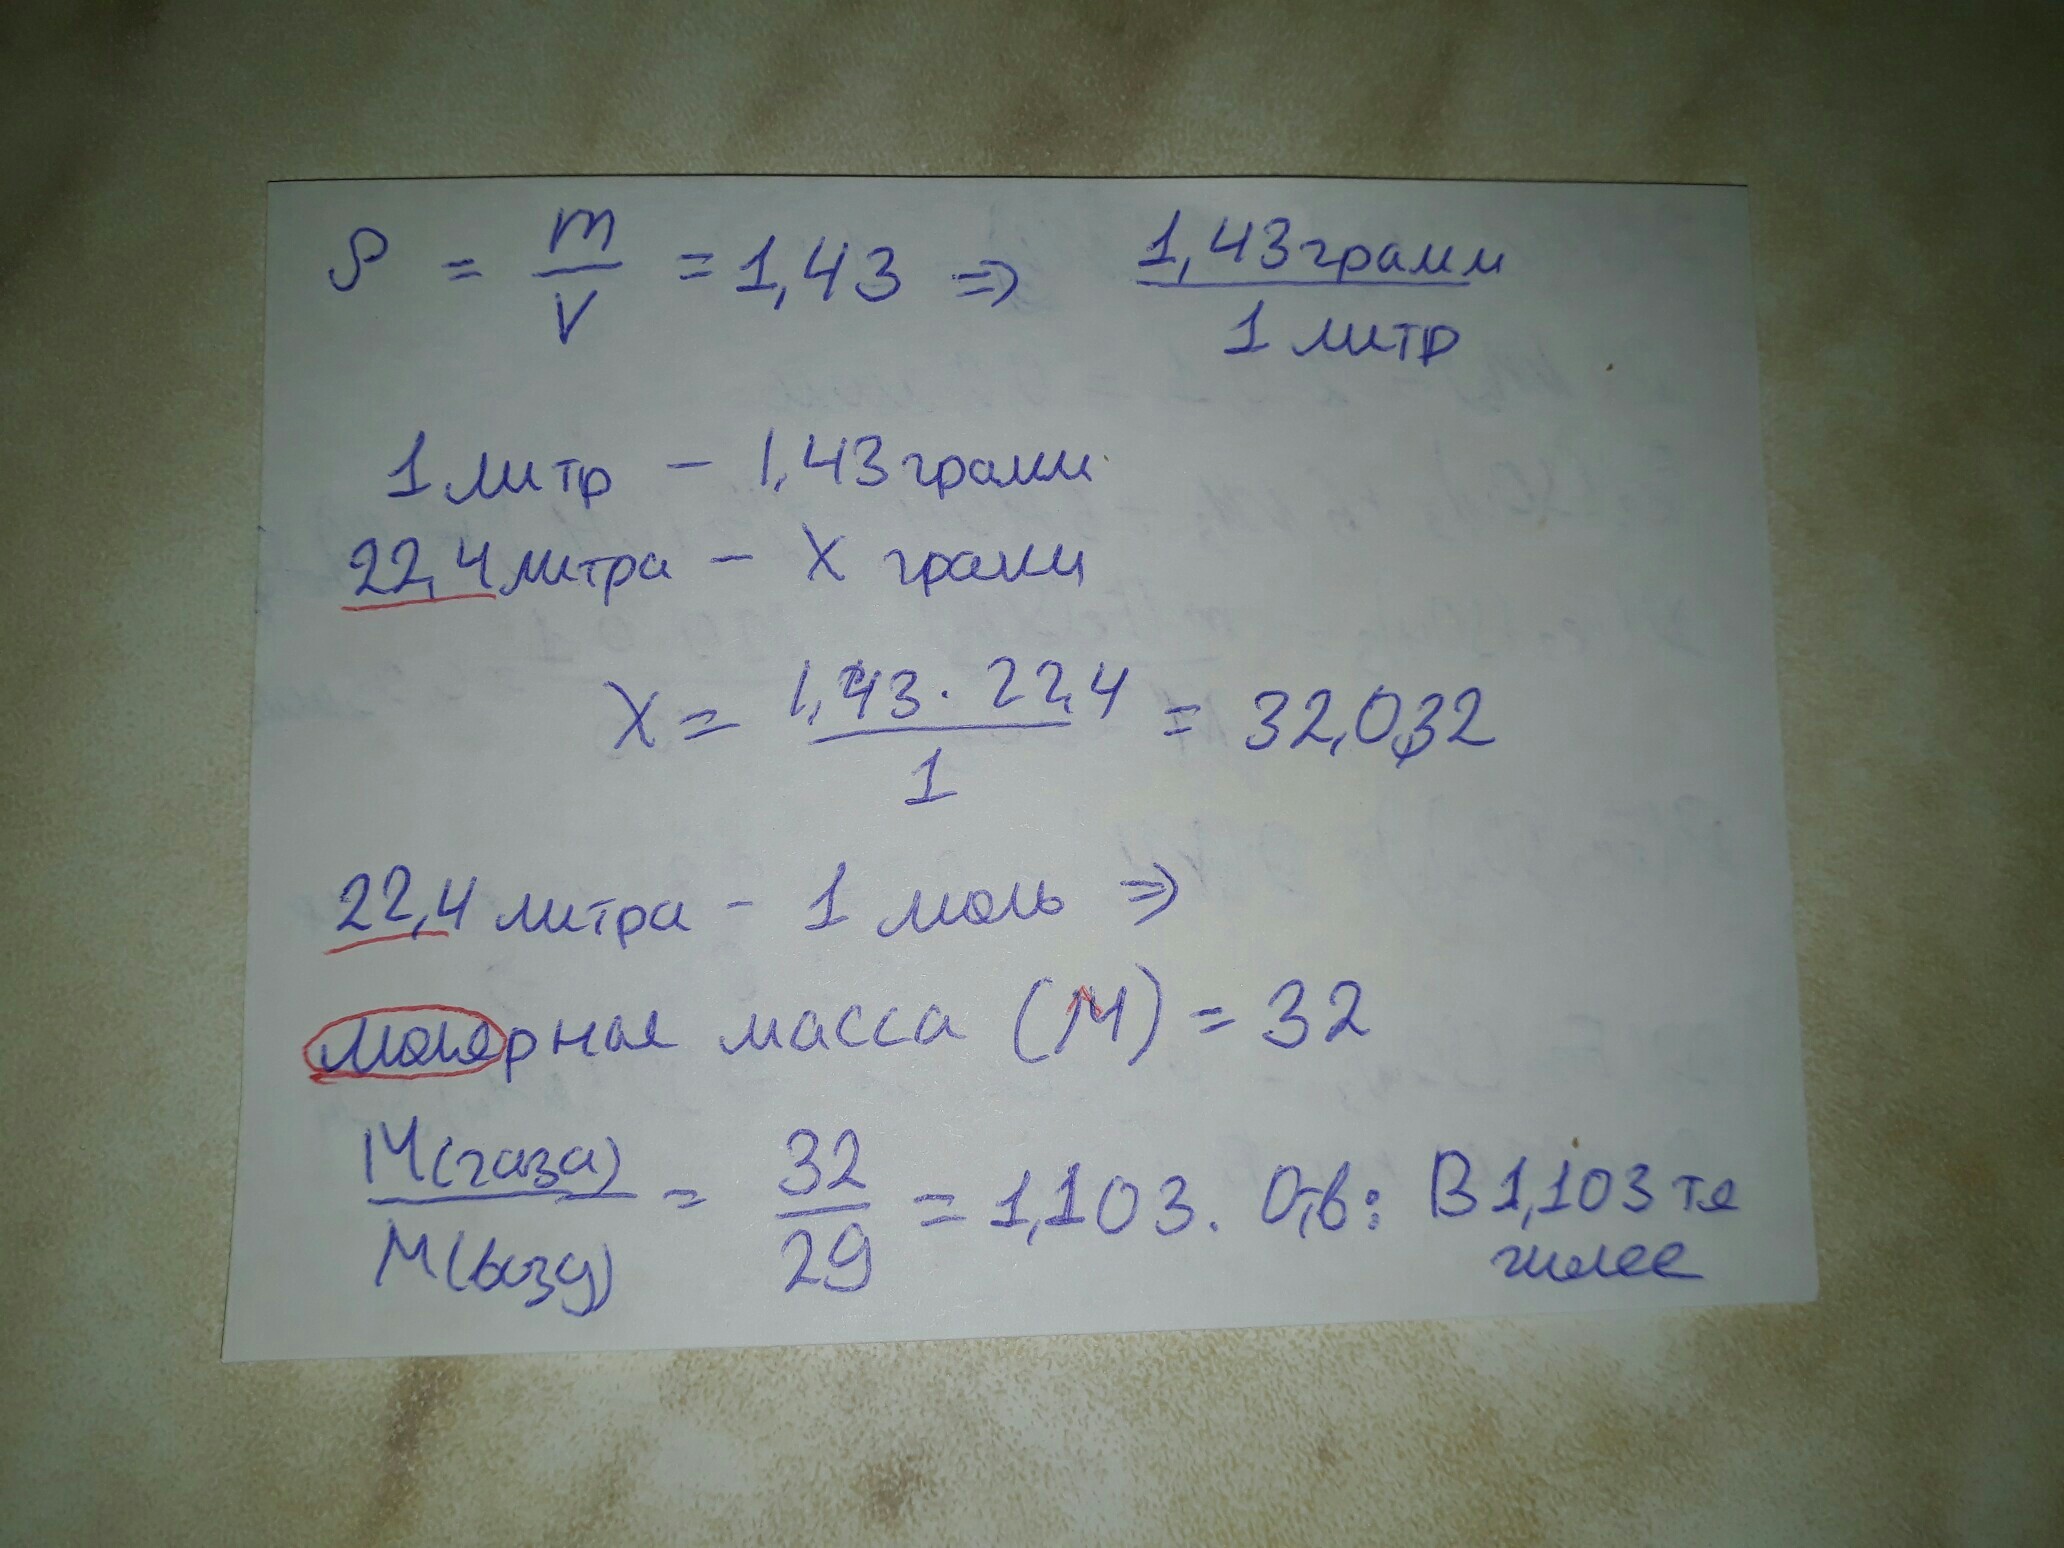 ρ = m/V = 1,43 => 1,43 грамм / 1 литр
1 литр – 1,43 грамм
22,4 литра – X грамм
X = 1,43 · 22,4 / 1 = 32,032
22,4 литра – 1 моль =>
молярная масса (M) = 32
M(газа) / M(возд) = 32 / 29 = 1,103. Отв: В 1,103 тя
желее